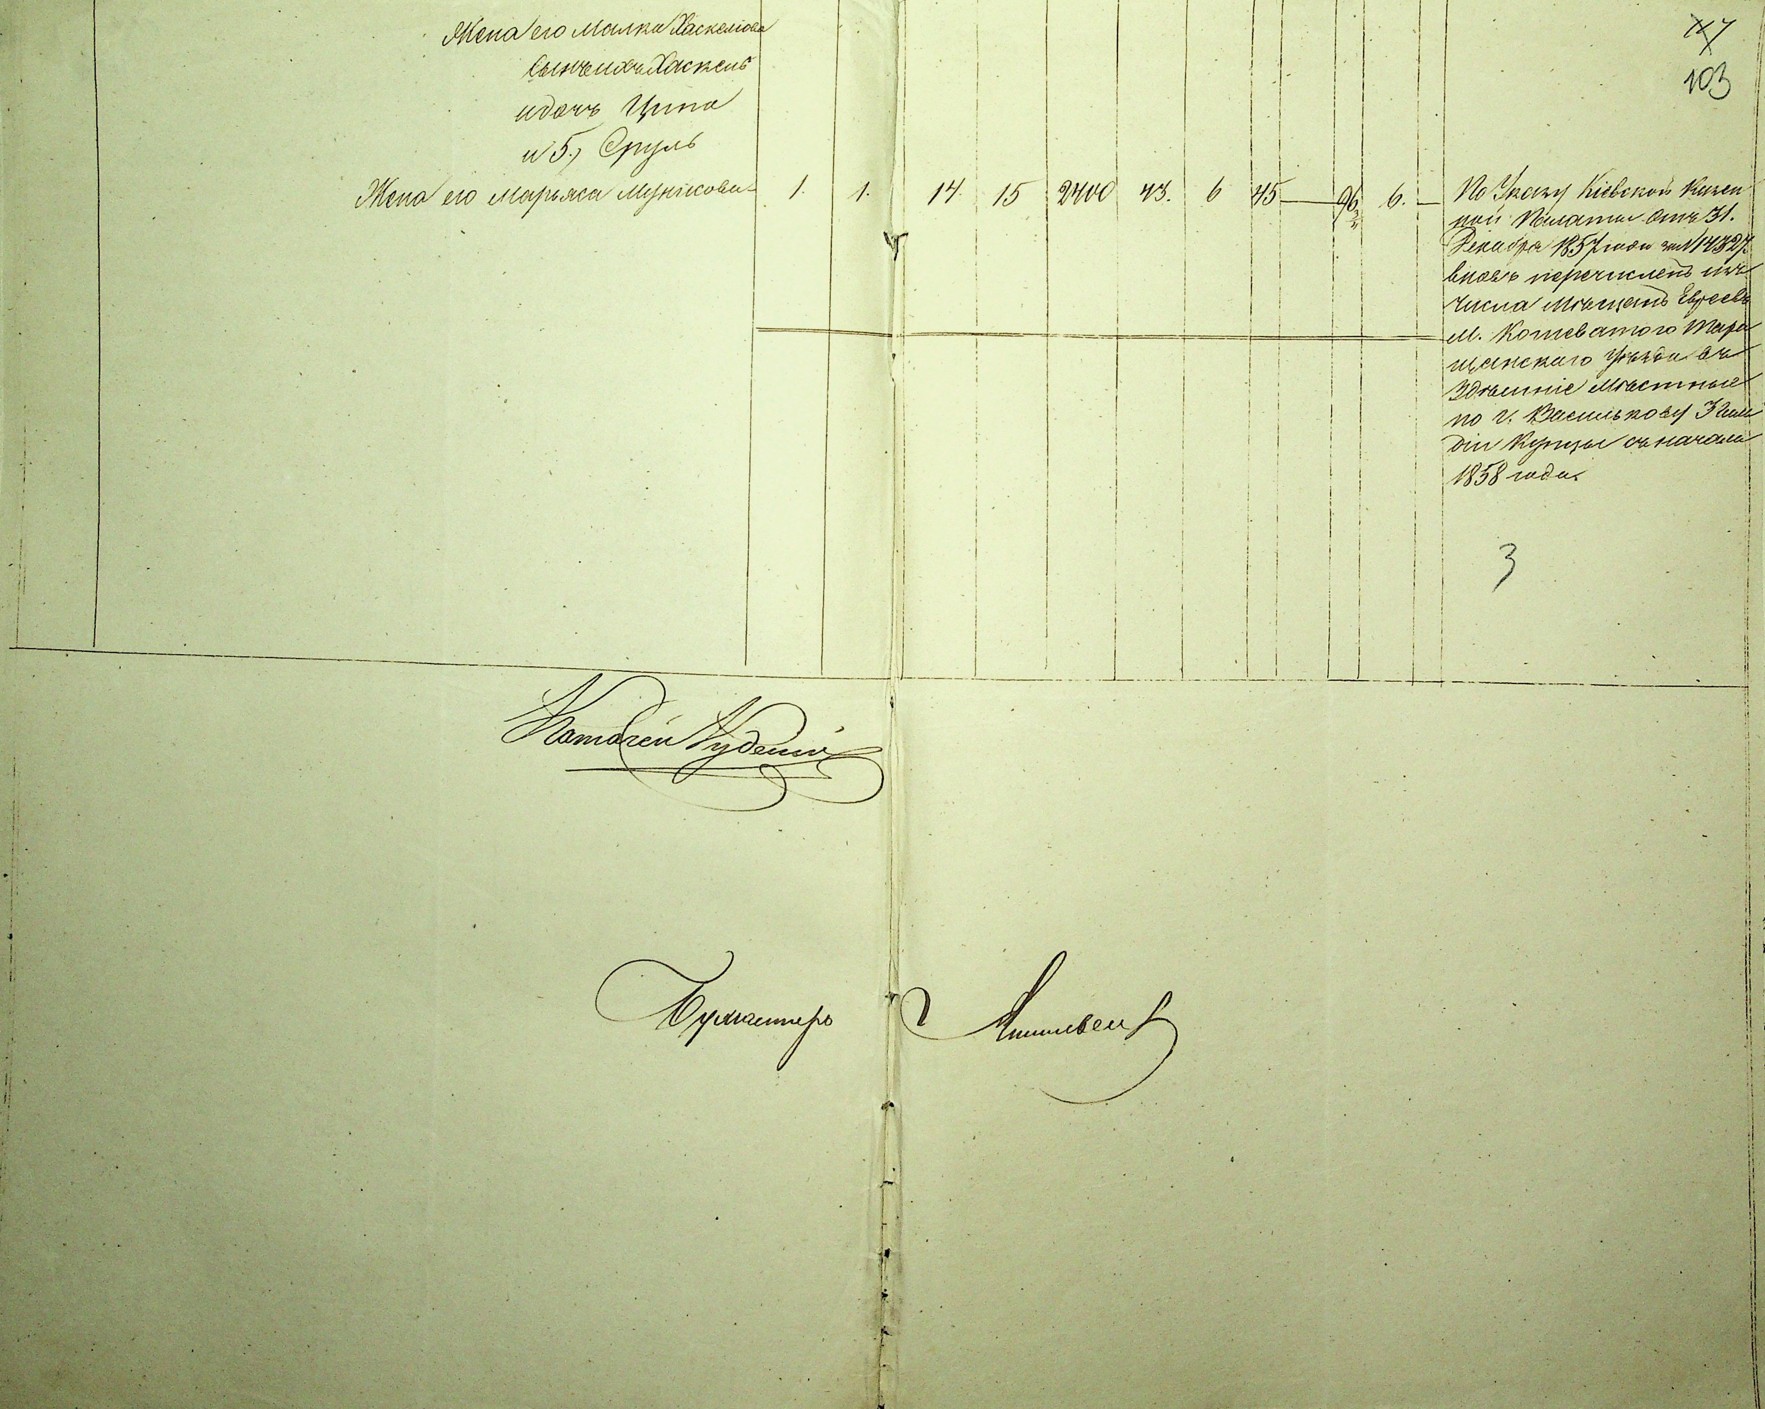 Жена его Малка Хаскелiова
сынъ ихъ Хаскель
и дочь Ципа
и 5., Сруль
Жена его Марьяса Мунiкова 1. 1. 14. 15 2400 43. 6 45 — 96 6. —
103
По Указу Кiевской Казен
ной Палаты отъ 31.
Декабря 1857 года за № 14327
вновь перечисленъ изъ
числа Мѣщанъ Евреевъ
М. Кошеватого Тара
щанскаго уѣзда въ
Здѣшнiе Мѣстные
по г. Василькову 3 Гиль
дiи Купцы съ начала
1858 года.
3
Бухгалтеръ